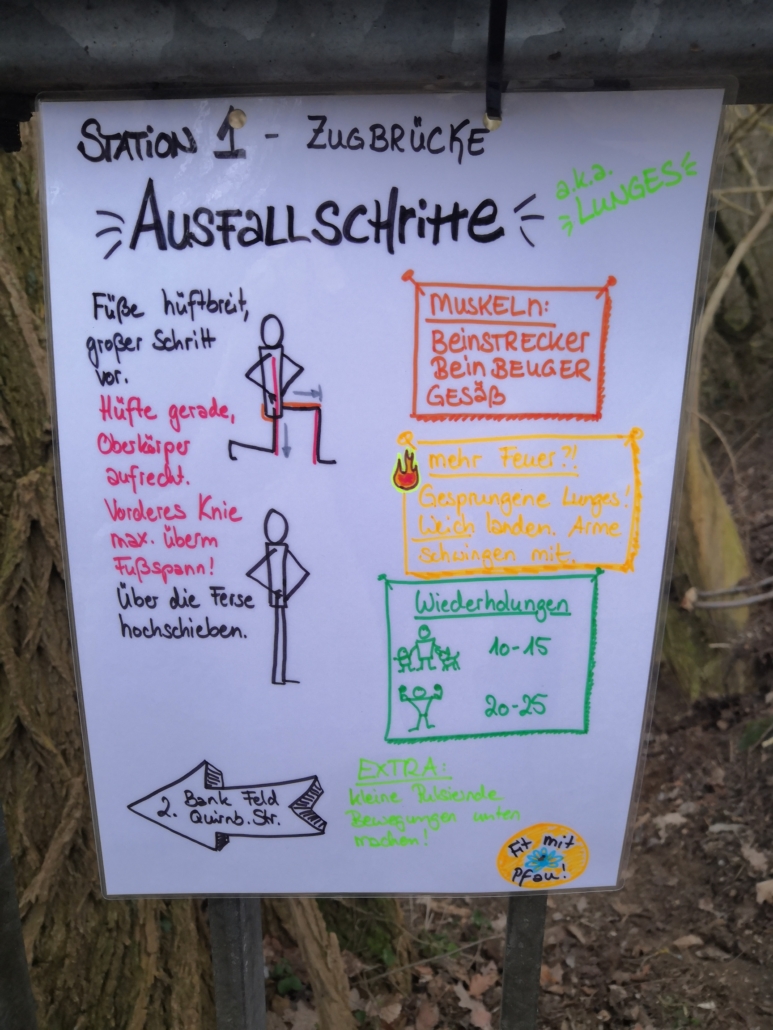 STATION 1 - ZUGBRÜCKE
AUSFALLSCHRITTE
a.k.a.
LUNGES
Füße hüftbreit,
großer Schritt
vor.
Hüfte gerade,
Oberkörper
aufrecht.
Vorderes Knie
max. überm
Fußspann!
Über die Ferse
hochschieben.
MUSKELN:
BEINSTRECKER
BEIN BEUGER
GESÄß
mehr Feuer?!
Gesprungene Lunges!
Weich landen. Arme
schwingen mit.
Wiederholungen
10-15
20-25
EXTRA:
kleine Pulsierende
Bewegungen unten
machen!
2. Bank Feld
Quirnb. Str.
Fit mit
Pfau!